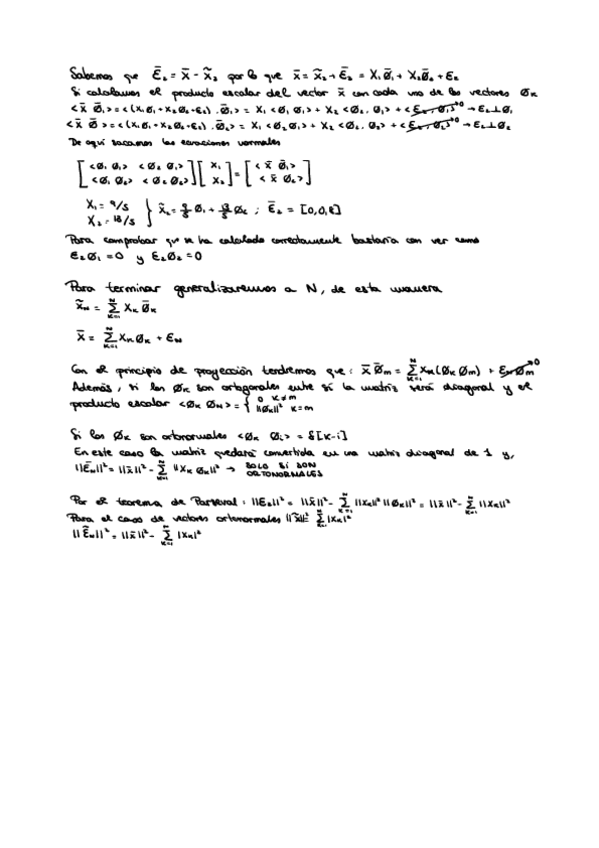 Sabemos que Ē₂ = x̄ - x̃₂ por lo que x̄ = x̃₂ + Ē₂ = X₁Ø̄₁ + X₂Ø̄₂ + E₂
Si calculamos el producto escalar del vector x̄ con cada uno de los vectores Øₖ
<x̄ Ø̄₁> = <(X₁Ø₁ + X₂Ø₂ + E₂) · Ø̄₁> = X₁ <Ø₁ Ø₁> + X₂ <Ø₂, Ø₁> + <E₂, Ø₁>→0 → E₂⊥Ø₁
<x̄ Ø̄> = <(X₁Ø₁ + X₂Ø₂ + E₂) · Ø̄₂> = X₁ <Ø₂ Ø₁> + X₂ <Ø₂, Ø₂> + <E₂, Ø₂>→0 → E₂⊥Ø₂
De aquí sacamos las ecuaciones normales
[<Ø₁ Ø₁> <Ø₂ Ø₁>] [X₁] = [<x̄ Ø̄₁>]
[<Ø₁ Ø₂> <Ø₂ Ø₂>] [X₂] = [<x̄ Ø₂>]
X₁ = 9/5
X₂ = 18/5 } x̃₂ = 9/5 Ø₁ + 18/5 Ø₂ ; Ē₂ = [0,0,8]
Para comprobar que se ha calculado correctamente bastaría con ver como
E₂Ø₁ = 0 y E₂Ø₂ = 0
Para terminar generalizaremos a N, de esta manera
x̃_N = Σ_{k=1}^{N} Xₖ Ø̄ₖ
x̄ = Σ_{k=1}^{N} XₖØₖ + E_N
Con el principio de proyección tendremos que : x̄ Ø̄m = Σ_{k=1}^{N} Xₖ(Øₖ Øm) + E_N Øm→0
Además, si los Øₖ son ortogonales entre sí la matriz será diagonal y el
producto escalar <Øₖ Ø_N> = { 0 k≠m
||Øₖ||² k=m
Si los Øₖ son ortonormales <Øₖ Øᵢ> = δ[k-i]
En este caso la matriz quedará convertida en una matriz diagonal de 1 y,
||Ē_N||² = ||x̄||² - Σ_{k=1}^{N} ||Xₖ Øₖ||² → SOLO SI SON ORTONORMALES
Por el teorema de Parseval : ||E₂||² = ||x̄||² - Σ_{k=1}^{N} ||Xₖ||² ||Øₖ||² = ||x̄||² - Σ_{k=1}^{N} ||Xₖ||²
Para el caso de vectores ortonormales ||x̃||² = Σ_{k=1}^{N} |Xₖ|²
||Ē_N||² = ||x̄||² - Σ_{k=1}^{N} |Xₖ|²